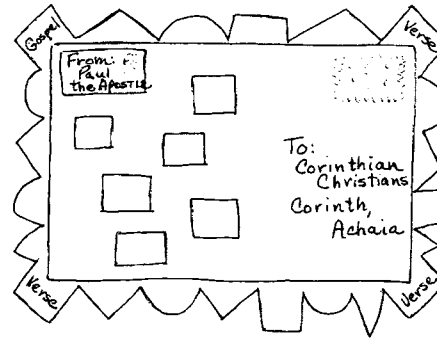 Gospel
Verse
From:
Paul
the APOSTLE
To:
Corinthian
Christians
Corinth,
Achaia
Verse
Verse